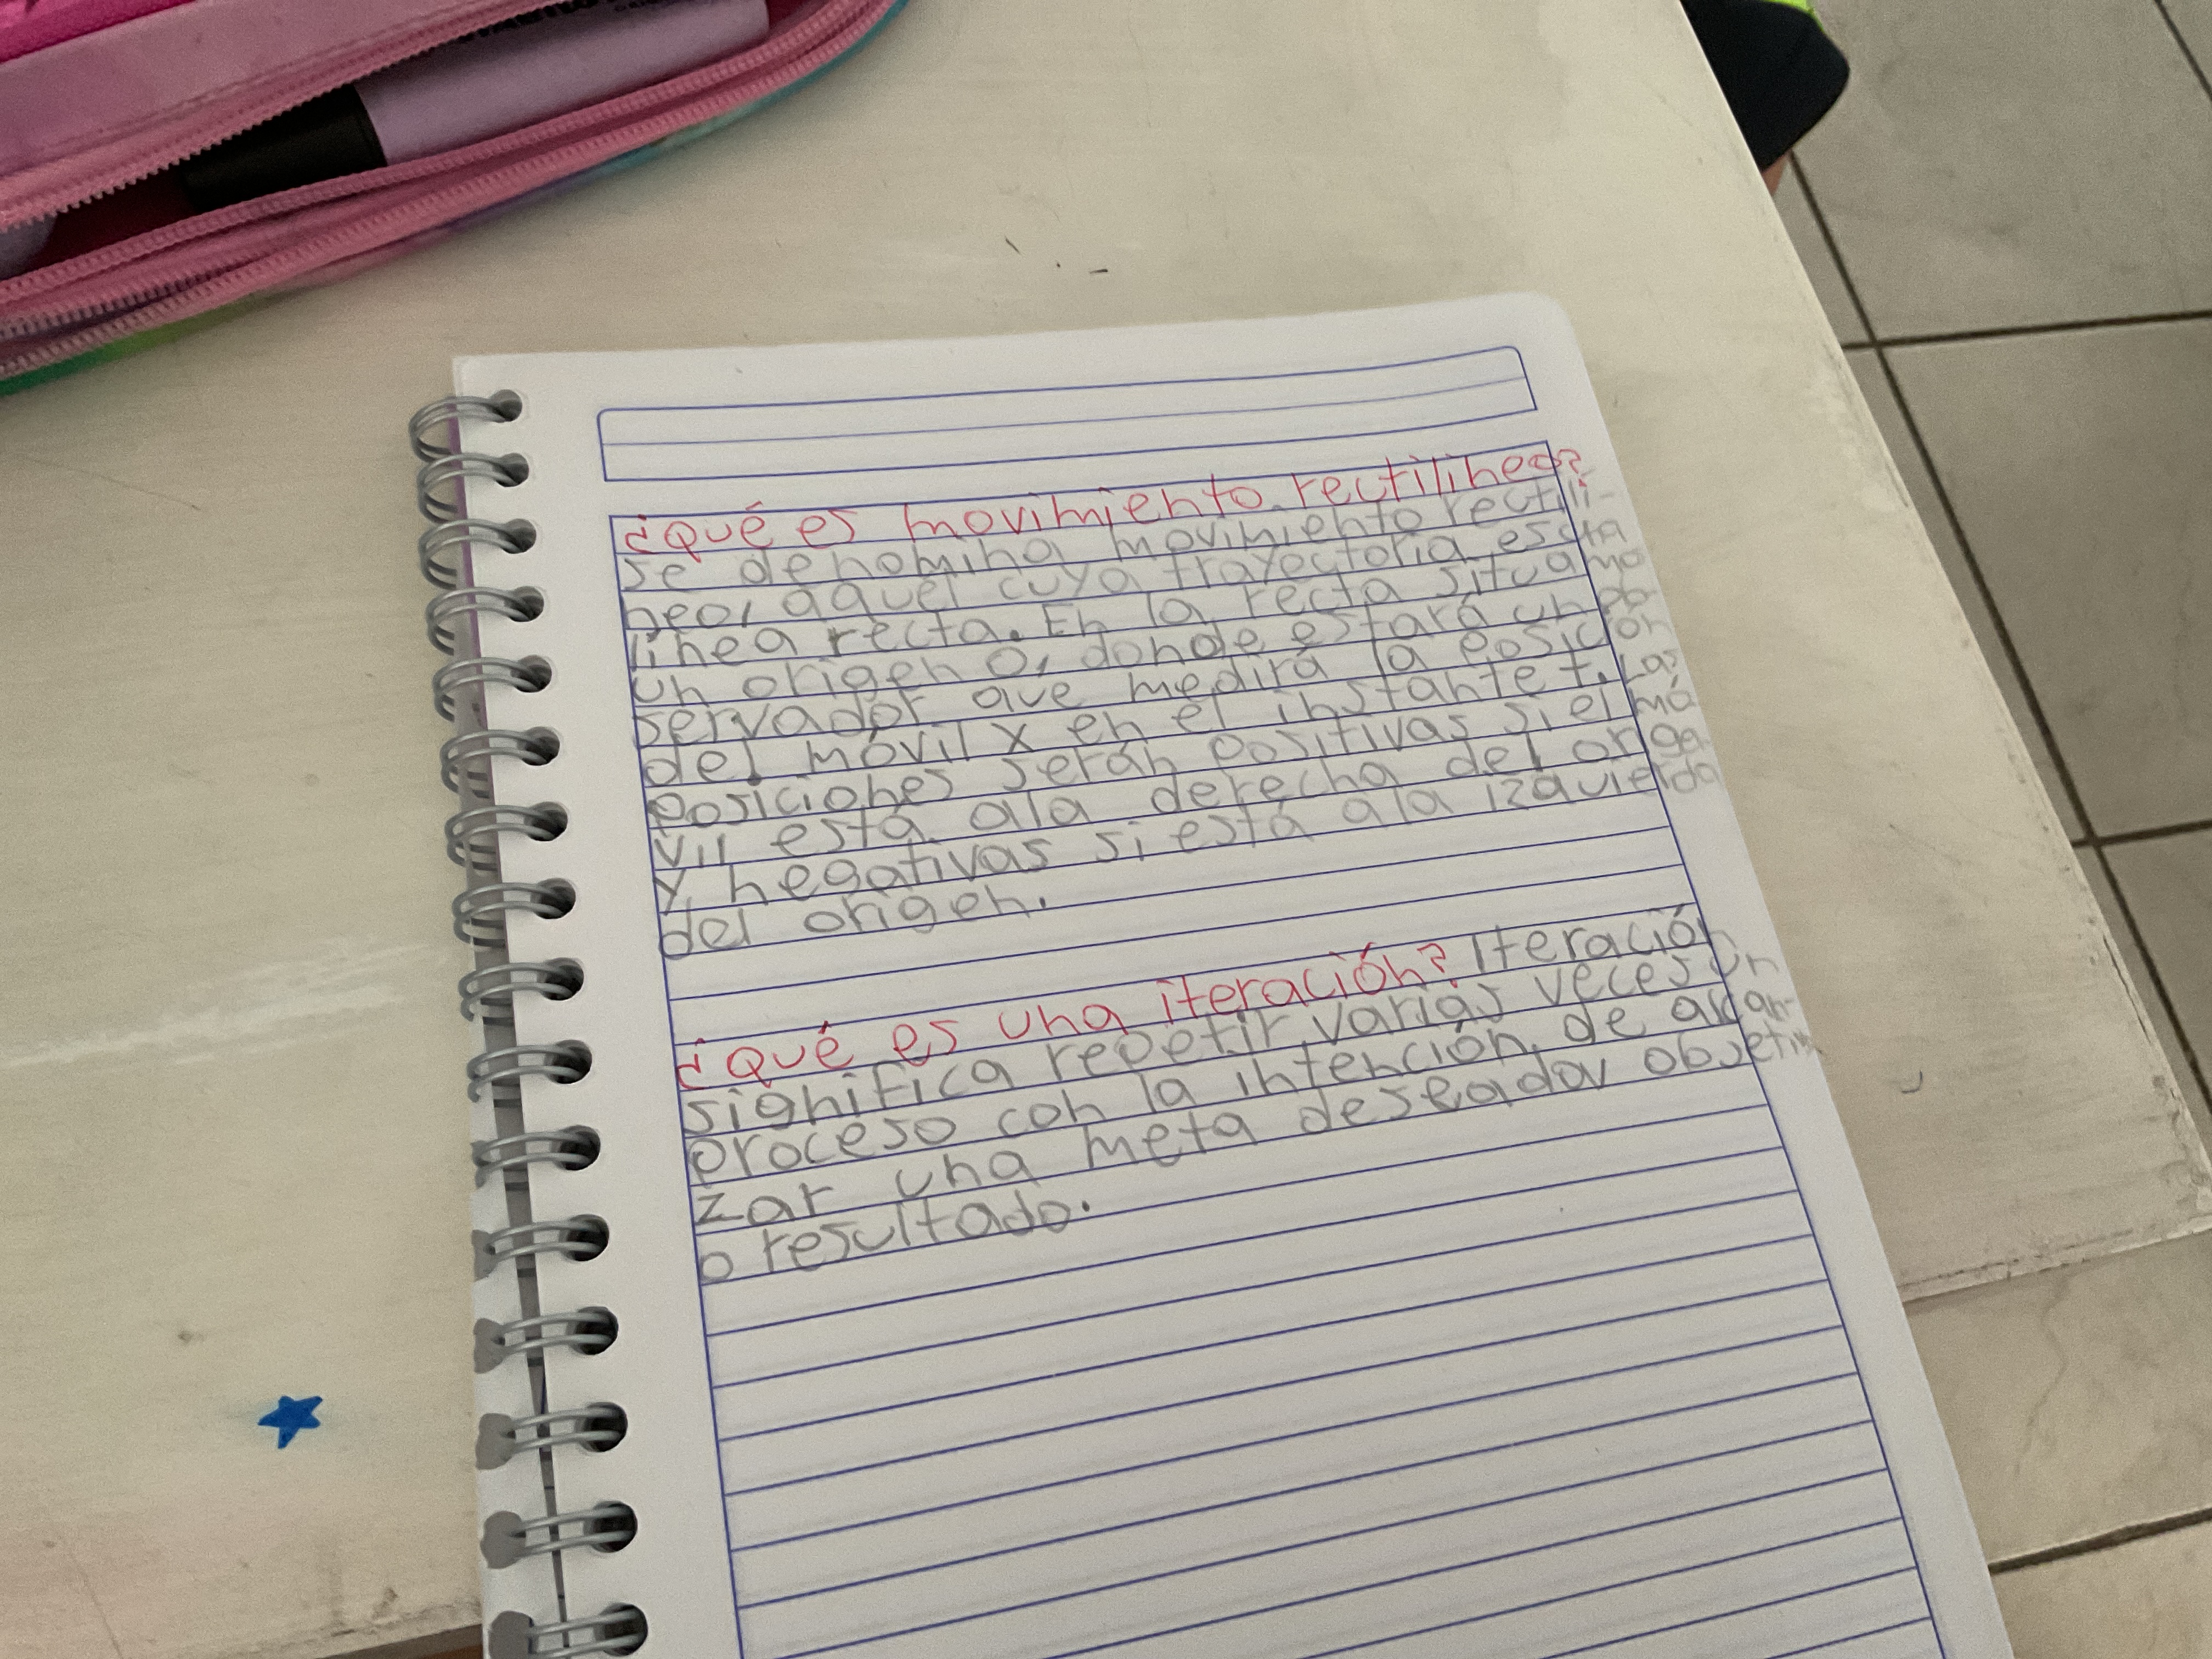 ¿Qué es movimiento rectilineo?
se denomina movimiento rectili-
neo, aquel cuya trayectoria es una
línea recta. En la recta situamo
un origen O, donde estará un ob
servador que medirá la posición
del móvil x en el instante t. Las
posiciones serán positivas si el mó
vil está ala derecha del origen
y negativas si está ala izquierda
del origen.
¿qué es una iteración? Iteración
significa repetir varias veces un
proceso con la intención de alcan-
zar una meta deseada objetivo
o resultado.